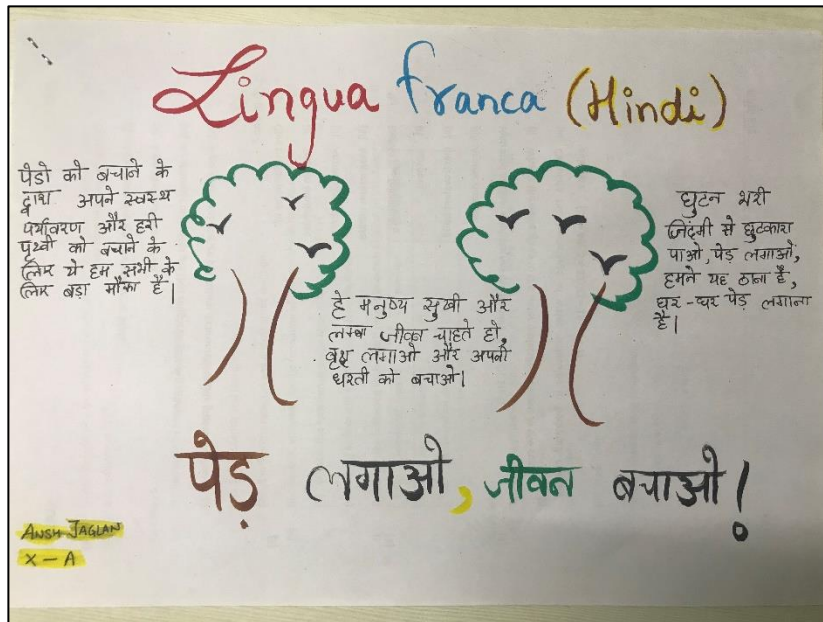 Lingua franca (Hindi)
पेडो को बचाने के
द्वारा अपने स्वस्थ
पर्यावरण और हरी
पृथ्वी को बचाने के
लिए ये हम सभी के
लिए बड़ा मौका है।
हे मनुष्य सुखी और
लम्बा जीवन चाहते हो,
वृक्ष लगाओ और अपनी
धरती को बचाओ।
घुटन भरी
जिंदगी से छुटकारा
पाओ, पेड़ लगाओ,
हमने यह ठाना है,
घर-घर पेड़ लगाना
है।
पेड़ लगाओ, जीवन बचाओ!
ANSH JAGLAN
X-A